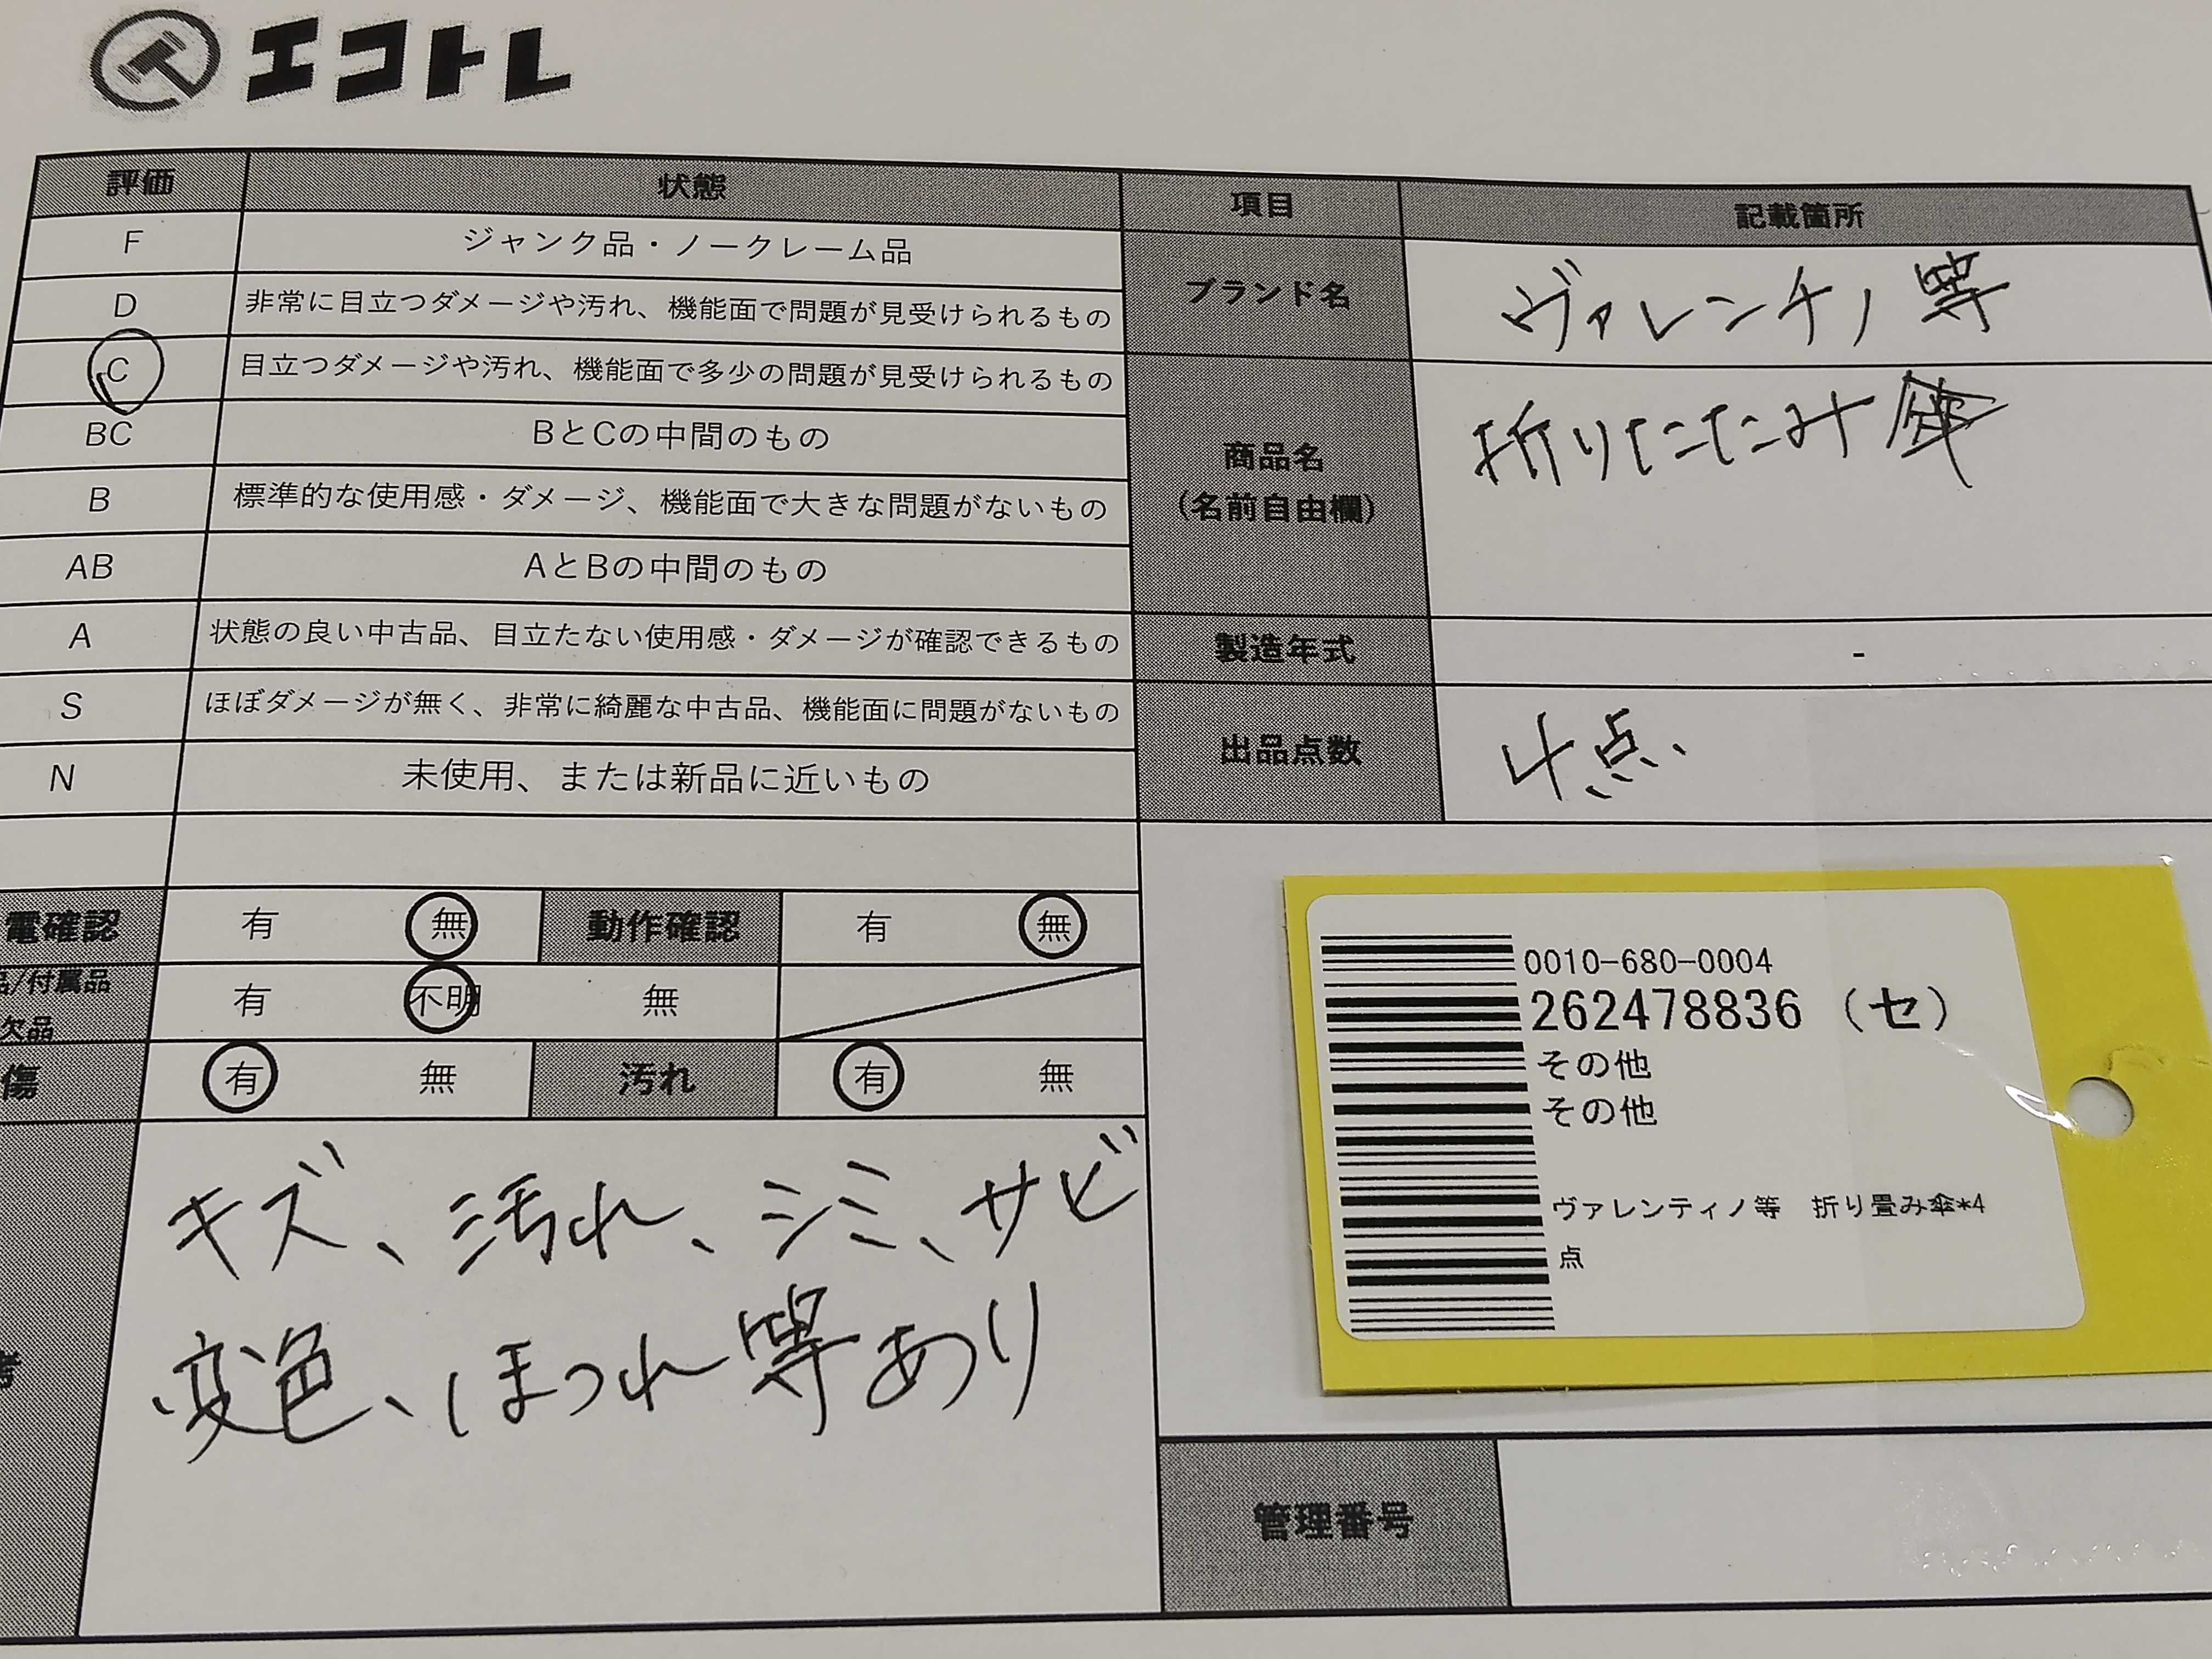 エコトレ
評価 状態
F ジャンク品・ノークレーム品
D 非常に目立つダメージや汚れ、機能面で問題が見受けられるもの
C 目立つダメージや汚れ、機能面で多少の問題が見受けられるもの
BC BとCの中間のもの
B 標準的な使用感・ダメージ、機能面で大きな問題がないもの
AB AとBの中間のもの
A 状態の良い中古品、目立たない使用感・ダメージが確認できるもの
S ほぼダメージが無く、非常に綺麗な中古品、機能面に問題がないもの
N 未使用、または新品に近いもの
電確認 有 無 動作確認 有 無
品/付属品 有 不明 無
欠品
傷 有 無 汚れ 有 無
考
キズ、汚れ、シミ、サビ
変色、ほつれ等あり
項目 記載箇所
ブランド名 ヴァレンチノ等
商品名 折りたたみ傘
(名前自由欄)
製造年式 -
出品点数 4点、
0010-680-0004
262478836 (セ)
その他
その他
ヴァレンティノ等 折り畳み傘*4
点
管理番号